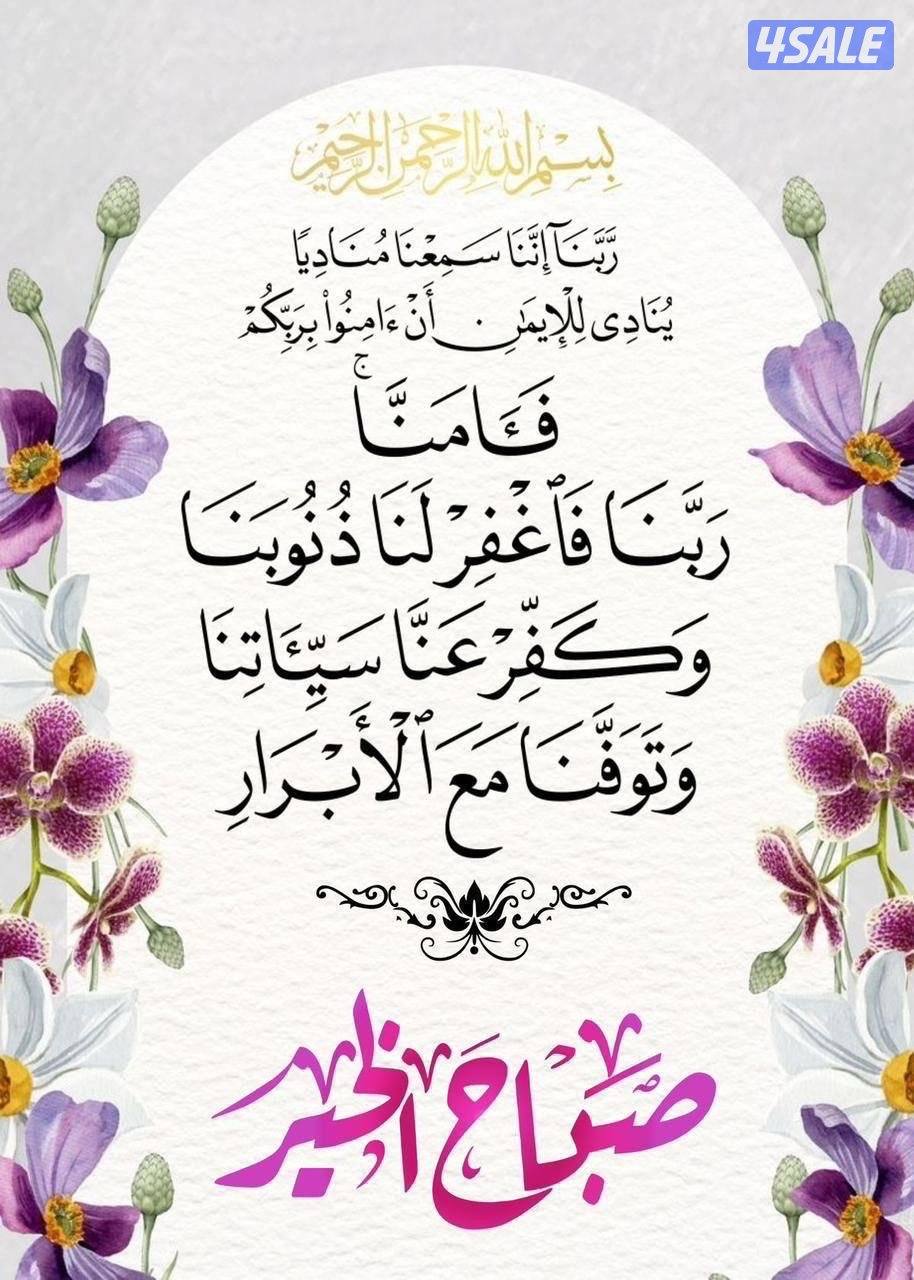 4SALE
بِسْمِ اللهِ الرَّحْمَنِ الرَّحِيمِ
رَّبَّنَآ إِنَّنَا سَمِعْنَا مُنَادِيًا
يُنَادِى لِلْإِيمَٰنِ أَنْ ءَامِنُوا۟ بِرَبِّكُمْ
فَـَٔامَنَّا ۚ
رَبَّنَا فَٱغْفِرْ لَنَا ذُنُوبَنَا
وَكَفِّرْ عَنَّا سَيِّـَٔاتِنَا
وَتَوَفَّنَا مَعَ ٱلْأَبْرَارِ
صَبَاحَ الخير